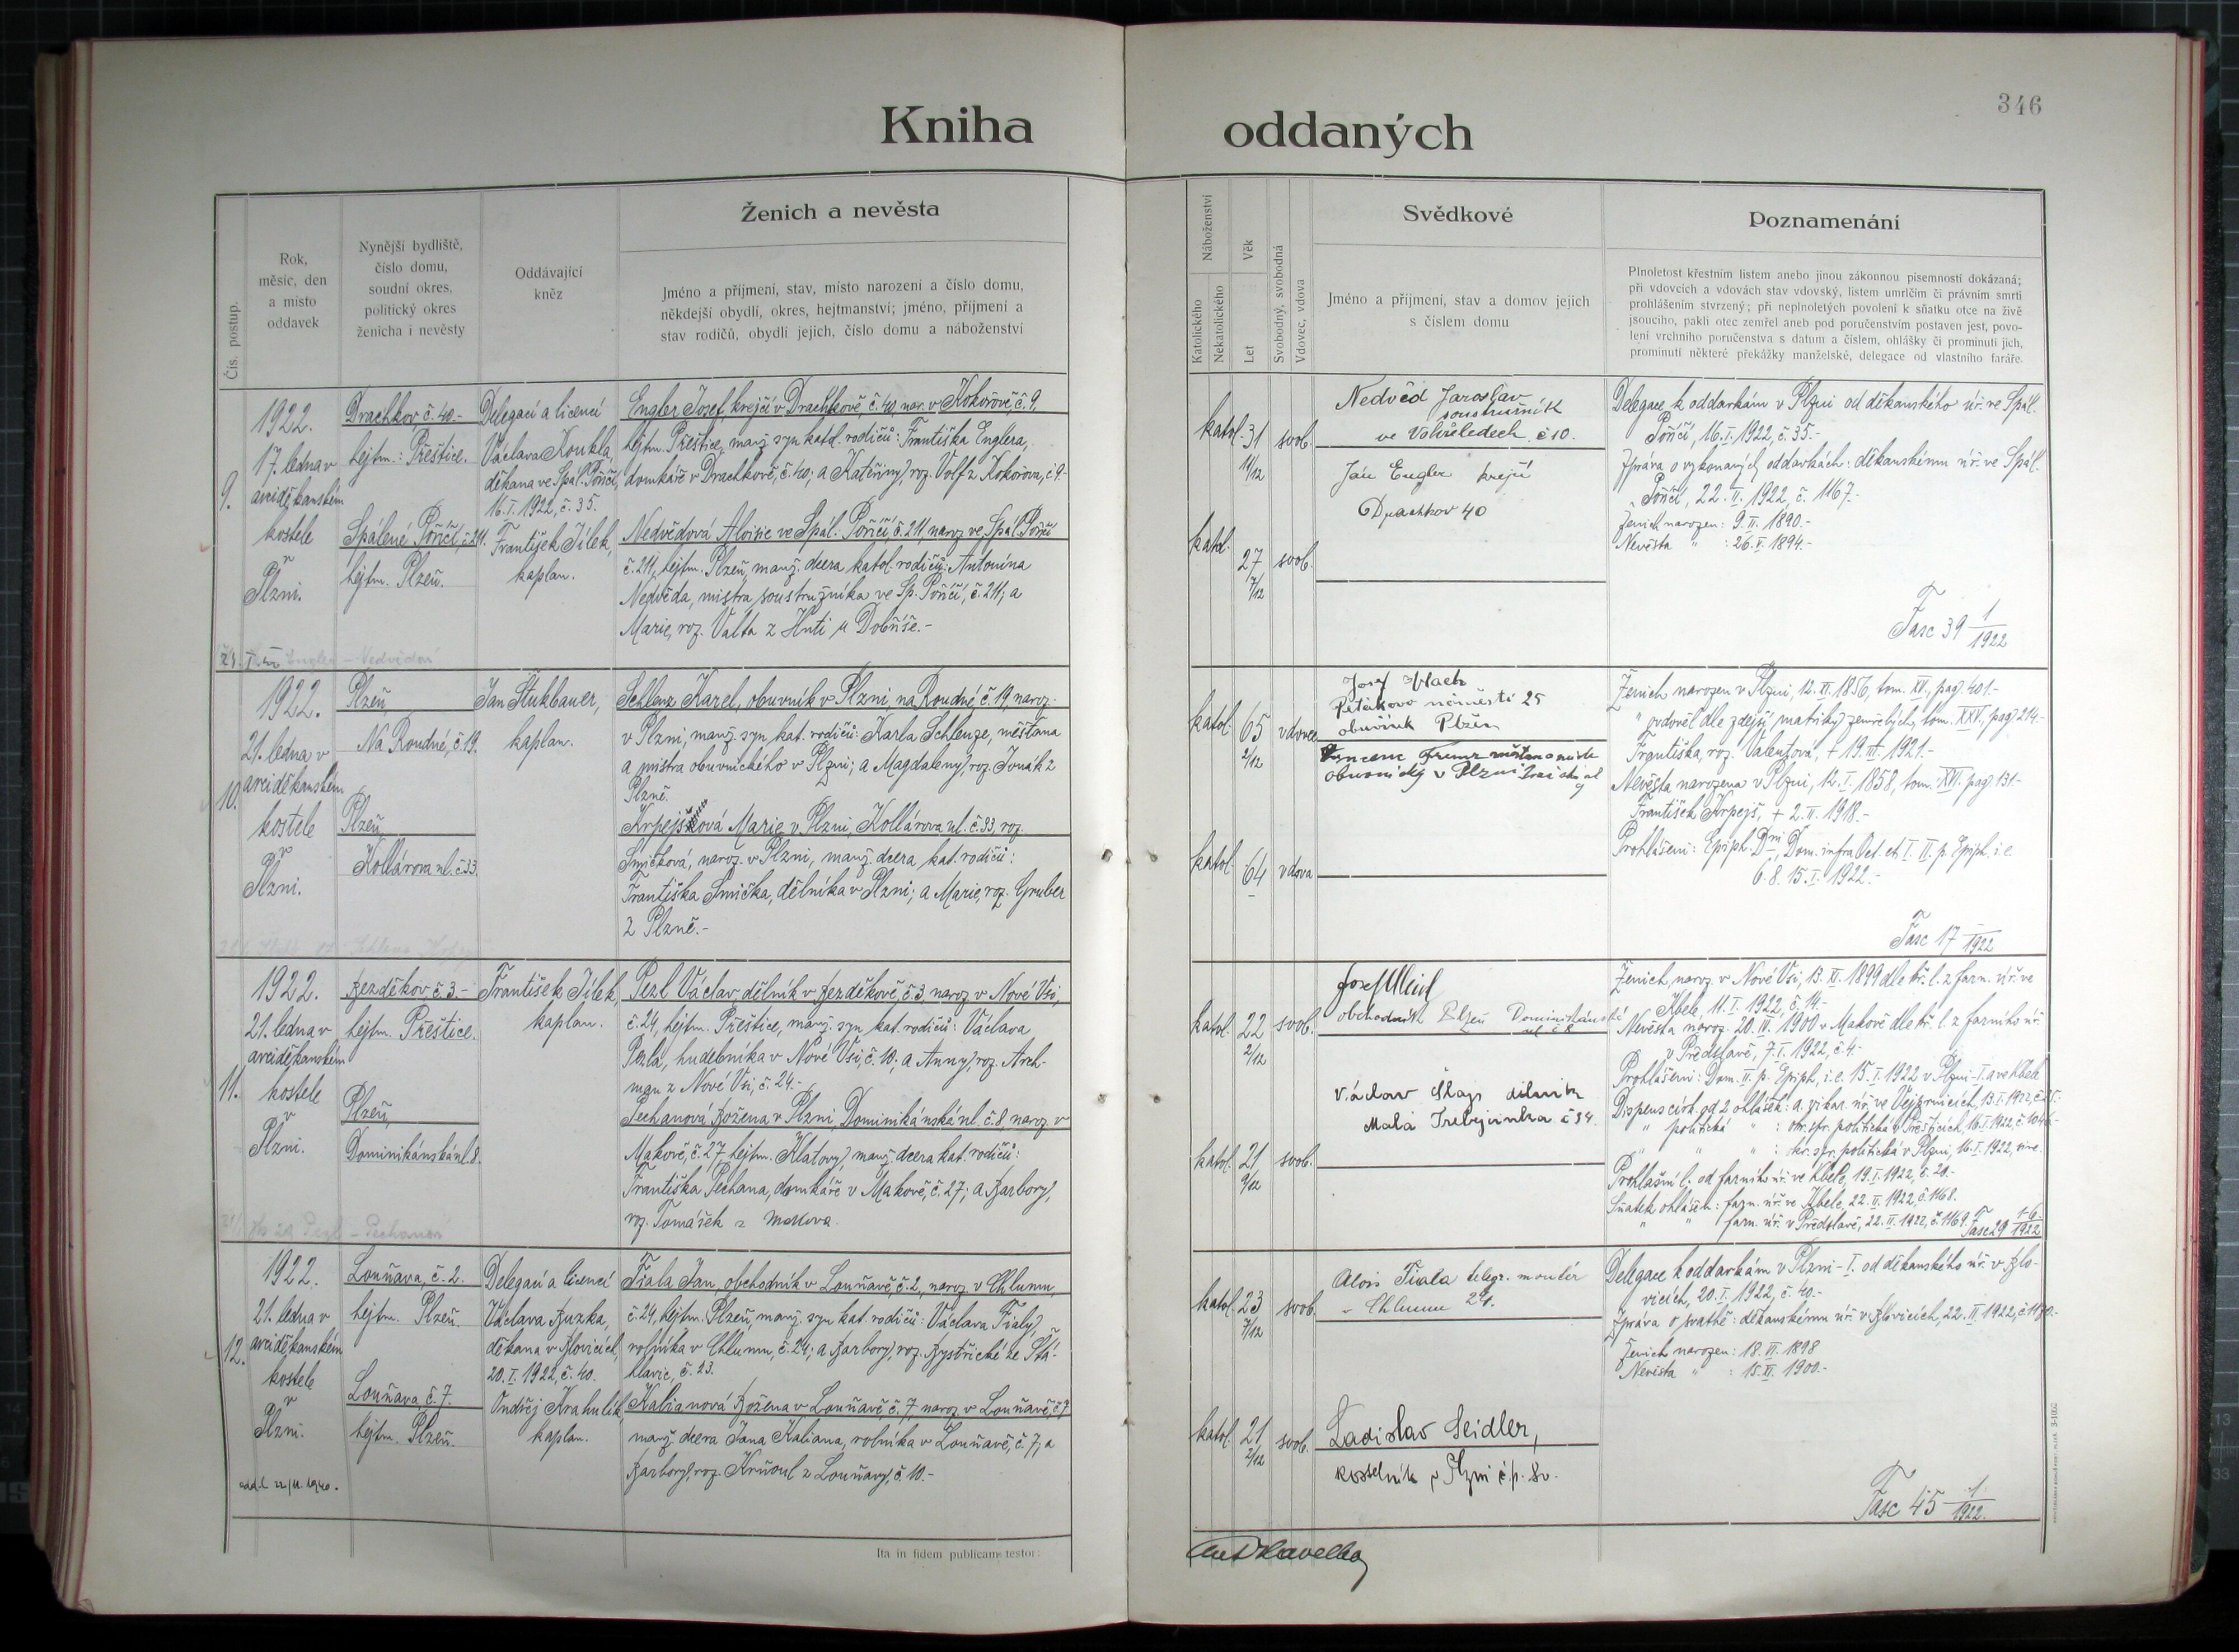 346
Kniha oddaných
Čís. postup.
Rok,
měsíc, den
a místo
oddavek
Nynější bydliště,
číslo domu,
soudní okres,
politický okres
ženicha i nevěsty
Oddávající
kněz
Ženich a nevěsta
Jméno a příjmení, stav, místo narození a číslo domu,
někdejší obydlí, okres, hejtmanství; jméno, příjmení a
stav rodičů, obydlí jejich, číslo domu a náboženství
Náboženství
Katolického
Nekatolického
Věk
Let
Svobodný, svobodná
Vdovec, vdova
Svědkové
Jméno a příjmení, stav a domov jejich
s číslem domu
Poznamenání
Plnoletost křestním listem anebo jinou zákonnou písemností dokázaná;
při vdovcích a vdovách stav vdovský, listem úmrtčím či právním smrti
prohlášením stvrzený; při neplnoletých povolení k sňatku otce na živě
jsoucího, pakli otec zemřel aneb pod poručenstvím postaven jest, povo-
lení vrchního poručenstva s datum a číslem, ohlášky či prominutí jich,
prominutí některé překážky manželské, delegace od vlastního faráře.
9.
1922.
17. ledna v
arciděkanském
kostele
v
Plzni.
Drachkov č. 40.-
hejtm.: Přeštice.
Spálené Poříčí, č. 211.
hejtm. Plzeň.
Delegací a licencí
Václava Koukla,
děkana ve Spál. Poříčí,
16.I.1922, č. 35.
František Jílek,
kaplan.
Engler Josef, krejčí v Drachkově, č. 40, nar. v Kokořově č. 9,
hejtm. Přeštice, manž. syn katol. rodičů: Františka Englera,
domkáře v Drachkově, č. 40; a Kateřiny, roz. Volf z Kokořova, č. 9.-
Nedvědová Aloisie ve Spál. Poříčí, č. 211, naroz. ve Spál. Poříčí
č. 211, hejtm. Plzeň, manž. dcera katol. rodičů: Antonína
Nedvěda, mistra soustružníka ve Sp. Poříčí, č. 211; a
Marie, roz. Valta z Huti u Dobříše.-
Engler - Nedvědová
katol. 31 11/12 svob.
katol. 27 7/12 svob.
Nedvěd Jaroslav
soustružník
ve Vohřeledech č 10.
Ján Engler krejčí
Drachkov 40
Delegace k oddavkám v Plzni od děkanského úř. ve Spál.
Poříčí, 16.I.1922, č. 35.-
Zpráva o vykonaných oddavkách: děkanskému úř. ve Spál.
Poříčí, 22.II.1922, č. 1167.-
Ženich narozen: 9.II.1890.-
Nevěsta " : 26.V.1894.-
Fasc 39 1/1922
10.
1922.
21. ledna v
arciděkanském
kostele
v
Plzni.
Plzeň
Na Roudné, č. 19.
Plzeň
Kollárova ul. č. 33.
Jan Stukbauer,
kaplan.
Schlenz Karel, obuvník v Plzni, na Roudné, č. 19, naroz.
v Plzni, manž. syn kat. rodičů: Karla Schlenze, měšťana
a mistra obuvnického v Plzni; a Magdaleny, roz. Jonák z
Plzně.
Krpejšová Marie v Plzni, Kollárova ul. č. 33, roz.
Smičková, naroz. v Plzni, manž. dcera kat. rodičů:
Františka Smička, dělníka v Plzni; a Marie, roz. Gruber
z Plzně.-
katol. 65 2/12 vdovec
katol. 64 - vdova
Josef
Petákovo náměstí 25
obuvník Plzeň
obuvnický v Plzni
Ženich narozen v Plzni, 12.XI.1856, tom. XV., pag. 401.-
" ovdověl dle zdejší matriky zemřelých, tom. XXV., pag. 214.-
Františka, roz. Valentová, + 19.VI.1921.-
Nevěsta narozena v Plzni, 12.I.1858, tom. XVI. pag. 131.-
František Krpejš, + 2.II.1918.-
Prohlášení: Epiph. Dni, Dom. infra Oct. et I. II. p. Epiph. i.e.
6. 8. 15.I.1922.-
Fasc 17 1/1922
11.
1922.
21. ledna v
arciděkanském
kostele
v
Plzni.
Bezděkov, č. 3.-
hejtm. Přeštice.
Plzeň,
Dominikánská ul. 8.
František Jílek,
kaplan.
Pezl Václav, dělník v Bezděkově, č. 3, naroz. v Nové Vsi,
č. 24, hejtm. Přeštice, manž. syn kat. rodičů: Václava
Pezla, hudebníka v Nové Vsi, č. 10; a Anny, roz. Areh-
man z Nové Vsi, č. 24.-
Pechanová Božena v Plzni, Dominikánská ul. č. 8, naroz. v
Makově, č. 27, hejtm. Klatovy, manž. dcera kat. rodičů:
Františka Pechana, domkáře v Makově, č. 27; a Barbory,
roz. Tomášek z Makova.
Pezl - Pechanová
katol. 22 2/12 svob.
katol. 21 9/12 svob.
Josef
obchodník Plzeň Dominikánská
ul. č 8
Václav dělník
Malá Trebejinka č 34.
Ženich naroz. v Nové Vsi, 13.XI.1899 dle kř. l. z farn. úř. ve
Kbele, 11.I.1922, č. 14.-
Nevěsta naroz. 20.IV.1900 v Makově dle kř. l. z farního úř.
v Předslavě, 7.I.1922, č. 4.-
Prohlášení: Dom. II. p. Epiph. i.e. 15.I.1922 v Plzni-I. a ve Kbele
Dispens církv. od 2 ohlášek: a. vikar. úř. ve Vejprnicích, 13.I.1922,
" politická " : okr. spr. politická v Přešticích, 16.I.1922,
" " " : okr. spr. politická v Plzni, 16.I.1922, sine.
Prohlášní l. od farního úř. ve Kbele, 19.I.1922, č. 20.-
Sňatek ohlášen: farn. úř. ve Kbele, 22.II.1922, č. 1168.
" " farn. úř. v Předslavě, 22.II.1922, č. 1169.
Fasc 29 1-6/1922
12.
1922.
21. ledna v
arciděkanském
kostele
v
Plzni.
Louňava, č. 2.
hejtm. Plzeň.
Louňava, č. 7.
hejtm. Plzeň.
Delegací a licencí
Václava Buzka,
děkana v Blovicích,
20.I.1922, č. 40.
Ondřej Krahulík,
kaplan.
Fiala Jan, obchodník v Louňavě, č. 2, naroz. v Chlumu,
č. 24, hejtm. Plzeň, manž. syn kat. rodičů: Václava Fialy,
rolníka v Chlumu, č. 24; a Barbory, roz. Bystřické ze Šťá-
hlavic, č. 23.
Kabianová Božena v Louňavě, č. 7, naroz. v Louňavě, č. 7
manž. dcera Jana Kabiana, rolníka v Louňavě, č. 7, a
Barbory, roz. Krňoul z Louňavy, č. 10.-
katol. 23 7/12 svob.
katol. 21 2/12 svob.
Alois Fiala telegr. montér
v Chlumu 24.
Ladislav Seidler,
kostelník v Plzni č.p. 80.
Delegace k oddavkám v Plzni-I. od děkanského úř. v Blo-
vicích, 20.I.1922, č. 40.-
Zpráva o svatbě: děkanskému úř. v Blovicích, 22.II.1922, č. 1170.-
Ženich narozen: 18.VI.1898
Nevěsta " : 15.XI.1900.-
Fasc 45 1/1922.
Ita in fidem publicam testor:
Ant Havelka